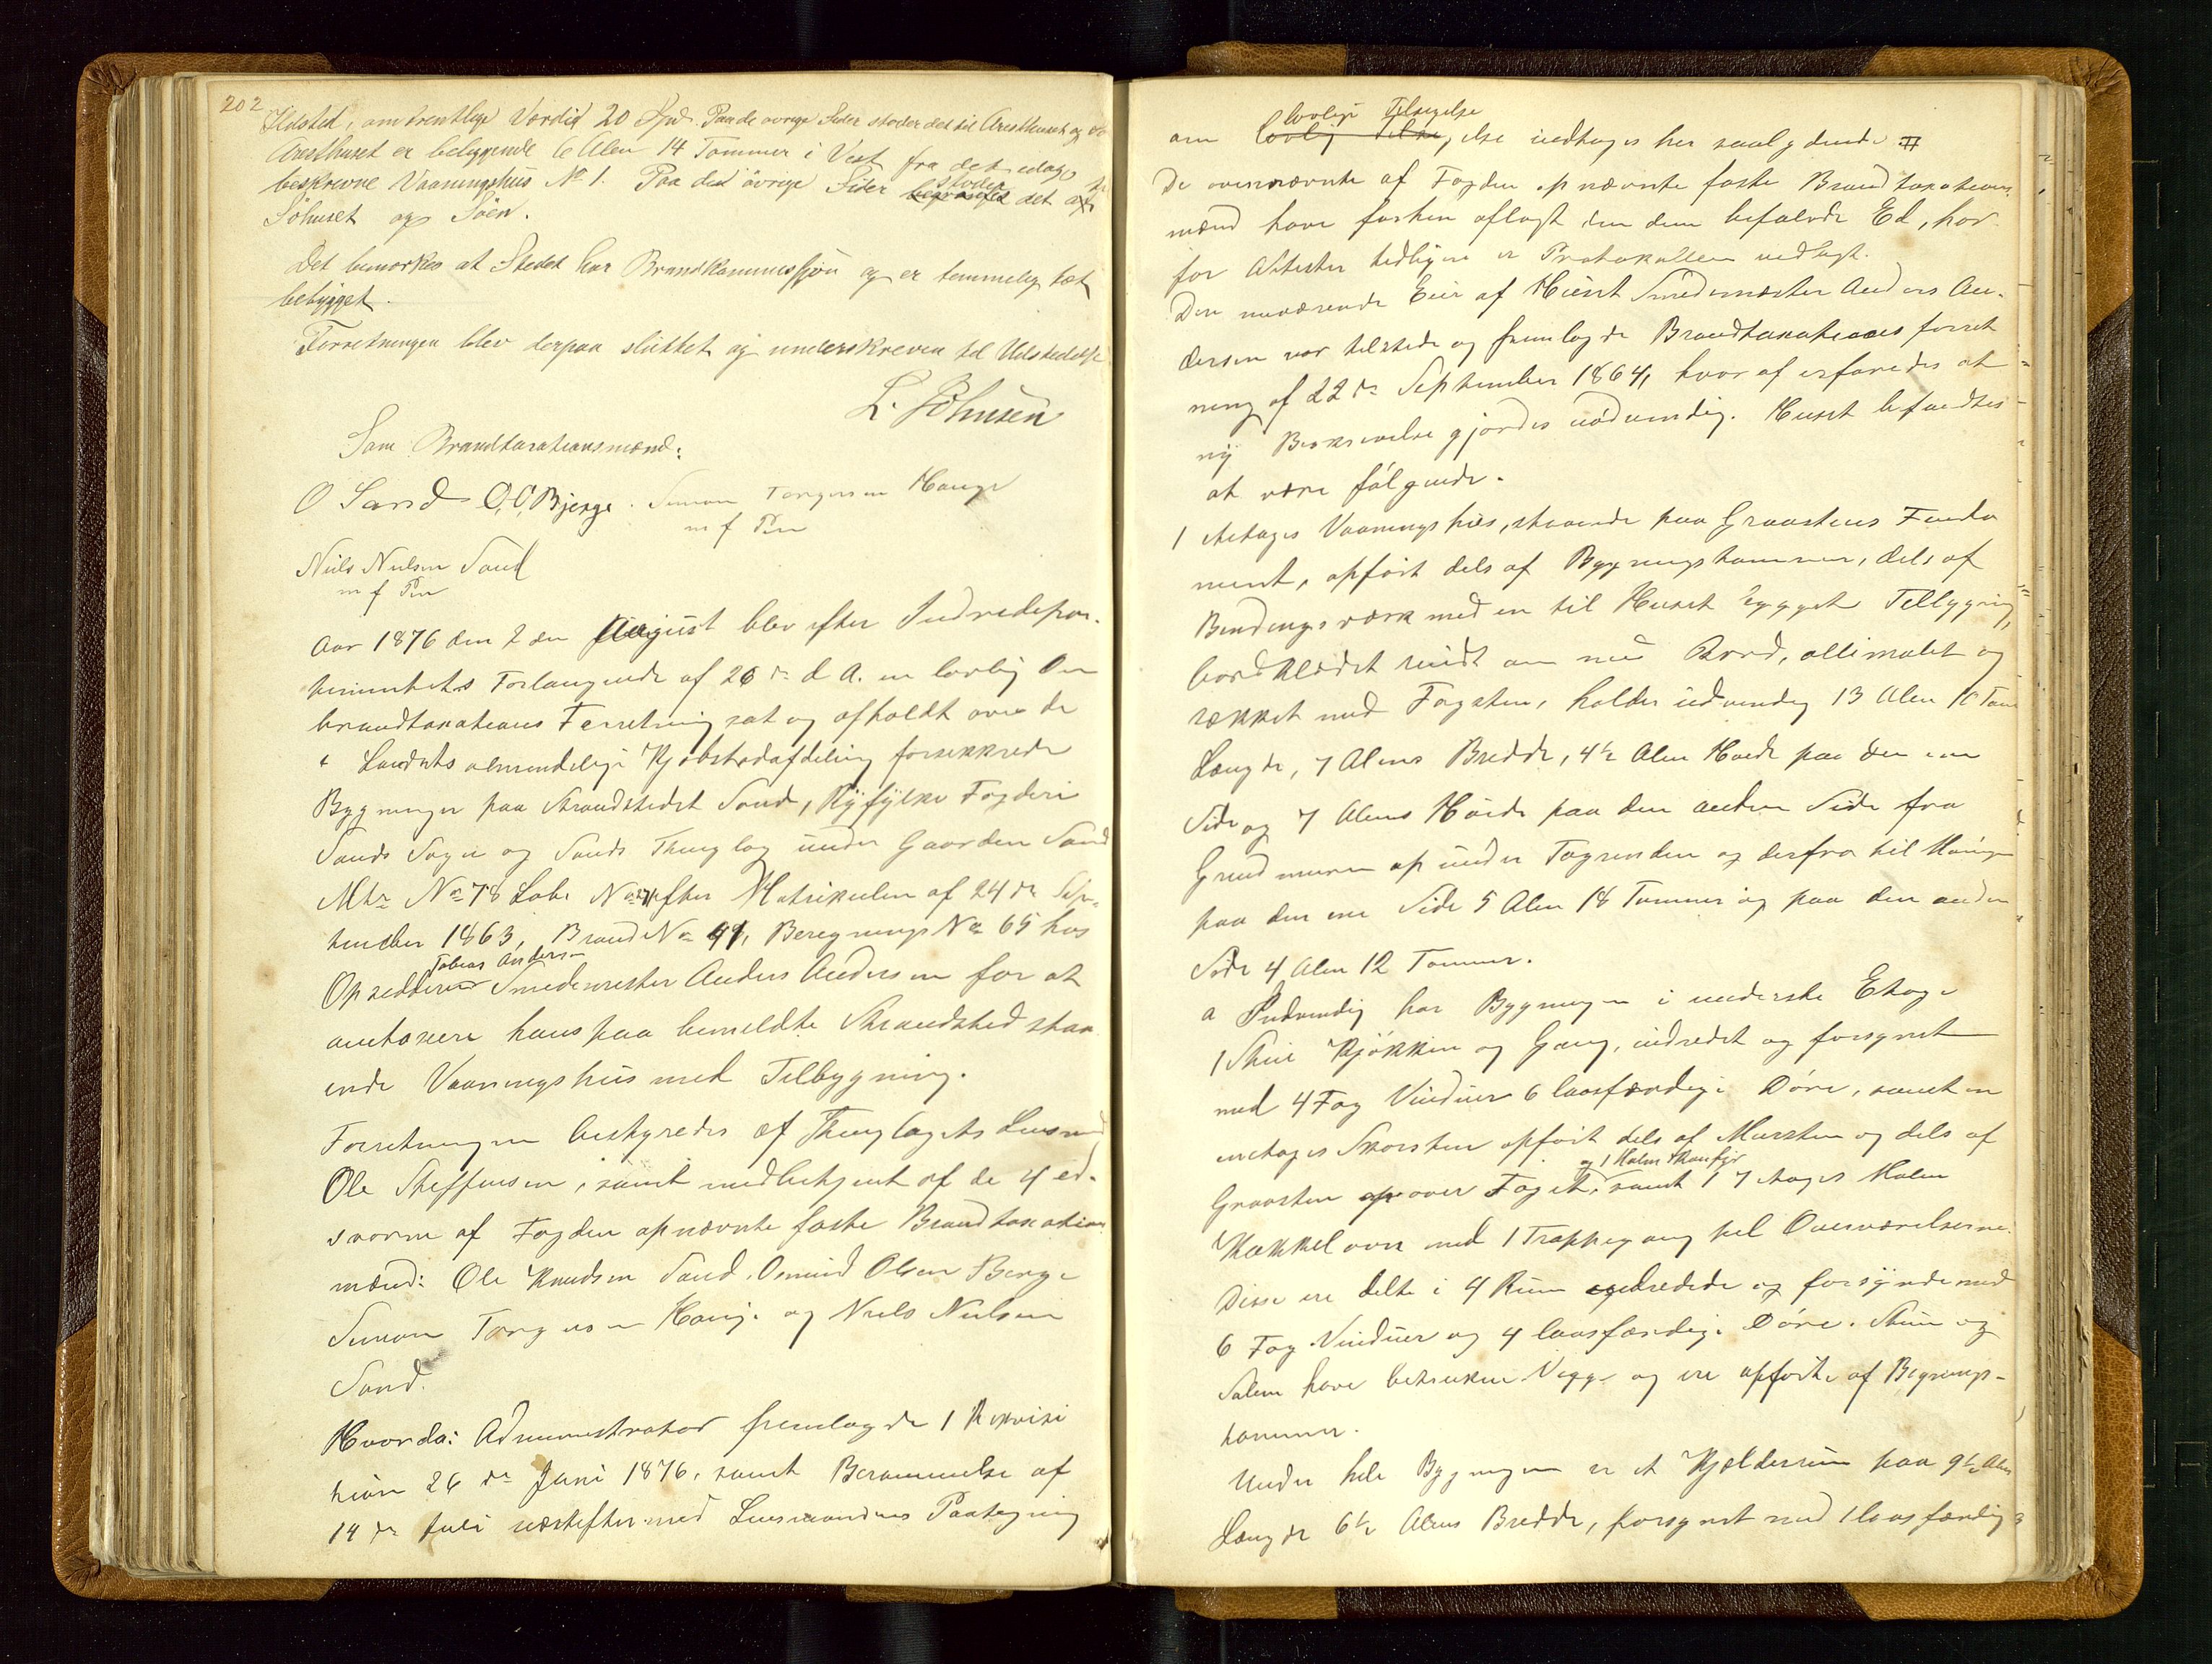 202
Ildsted, omtrentlige Værdie 20 Spd. Paa de øvrige Sider støder det til Aresthuset og
Aresthuset er beliggende 6 Alen 14 Tommer i Vest fra det idag
beskrevne Vaaningshus No 1. Paa de øvrige Sider støder det
Söhuset og Söen.
Det bemærkes at Stedet har Brandkommission og er temmelig tæt
bebygget.
Forretningen blev derpaa sluttet og underskreven til Udstedelse
L. Johnsen
Som Brandtaxationsmænd:
O Sand O, O, Bjerge. Simon Torgersen Hauge
m f Pen
Niels Nielsen Sand
m f Pen
Aar 1876 den 2den August blev efter Indredepar-
tementets Forlangende af 26de d. A. en lovlig Om
brandtaxations Forretning sat og afholdt over de
i Landets almindelige Kjøbstadafdeling forsikkrede
Bygninger paa Strandstedet Sand, Ryfylke Fogderi
Sands Sogn og Sands Thinglag under Gaarden Sand
Mtr No 78 Løbe No efter Matrikulen af 24de Sep-
tember 1863, Brand No 41, Beregnings No 65 hos
Tobias Andersen
Opsidderen Smedemester Anders Andersen for at
omtaxere hans paa bemeldte Strandsted staa
ende Vaaningshus med Tilbygning.
Forretningen bestyredes af Thinglagets Lensmand
Ole Steffensen, samt medbetjent af de 4 ed-
svorne af Fogden opnævnte faste Brandtaxations
mænd: Ole Knudsen Sand, Osmund Olsen Berge
Simon Torgersen Hauge og Niels Nielsen
Sand.
Hvorda: Administrator fremlagde 1 Rekvisi
tion 26de Juni 1876, samt Berammelse af
14de Juli næstefter med Lensmandens Paategning
lovlige Tilsigelse
om lovlig Tilsigelse indtages her saalydende #
De ovennævnte af Fogden opnævnte faste Brandtaxations
mænd have forhen aflagt den dem befalede Ed, hvor
for Attester tidligere er Protokollen vedlagt.
Den nuværende Eier af Huset Smedemester Anders An-
dersen var tilstede og fremlagde Brandtaxations forret
ning af 22de September 1864, hvoraf erfaredes at
ny Beskrivelse gjordes nødvendig. Huset befandtes
at være følgende.
1 Etages Vaaningshus, staaende paa Graastens Funda
ment, opført dels af Bygningstømmer, dels af
Bindingsværk med en til Huset bygget Tilbygning,
bordklædet rundt om med Bord, oliemalet og
tækket med Tagsten, holder udvendig 13 Alen 10 Tom
Længde, 7 Alens Bredde, 4½ Alen Høide paa den ene
Side og 7 Alens Høide paa den anden Side fra
Grundmuren op under Tagrenden og derfra til Møngen
paa den ene Side 5 Alen 18 Tommer og paa den anden
Side 4 Alen 12 Tommer.
a Indvendig har Bygningen i underste Etage
1 Stue Kjøkken og Gang, indredet og forsynet
med 4 Fag Vinduer 6 laasfærdige Døre, samt en
enetages Skorsten opført dels af Mursten og dels af
og 1 Holm Komfyr
Graasten op over Taget, samt 1 7 Etages Holm
Kakkelovn med 1 Trappegang til Overværelserne.
Disse ere delte i 4 Rum indredede og forsynede med
6 Fag Vinduer og 4 laasfærdige Døre. Stue og
Salen have betrukne Vægge og ere opførte af Bygnings-
tømmer.
Under hele Bygningen er et Kjælderrum paa 9½ Alen
Længde 6½ Alens Bredde, forsynet med 1 laasfærdig